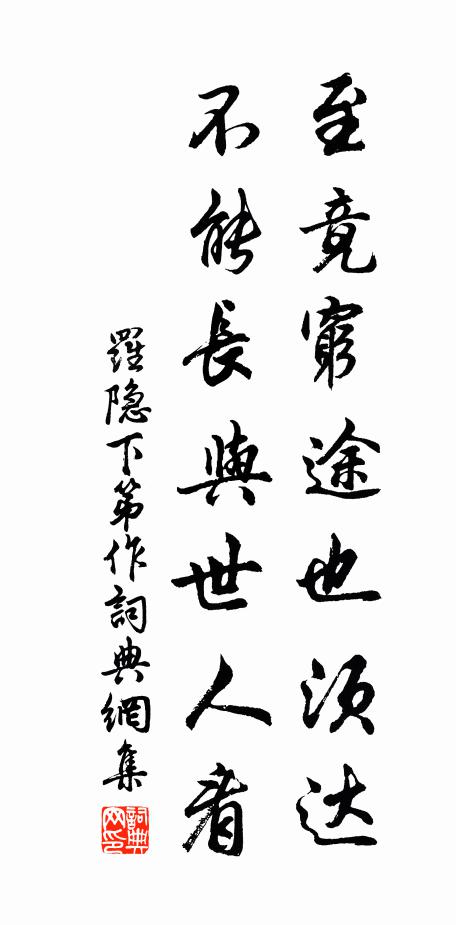 至竟窮途也須达
不能長與世人看
羅隐下第作詞典網集
詞典网印